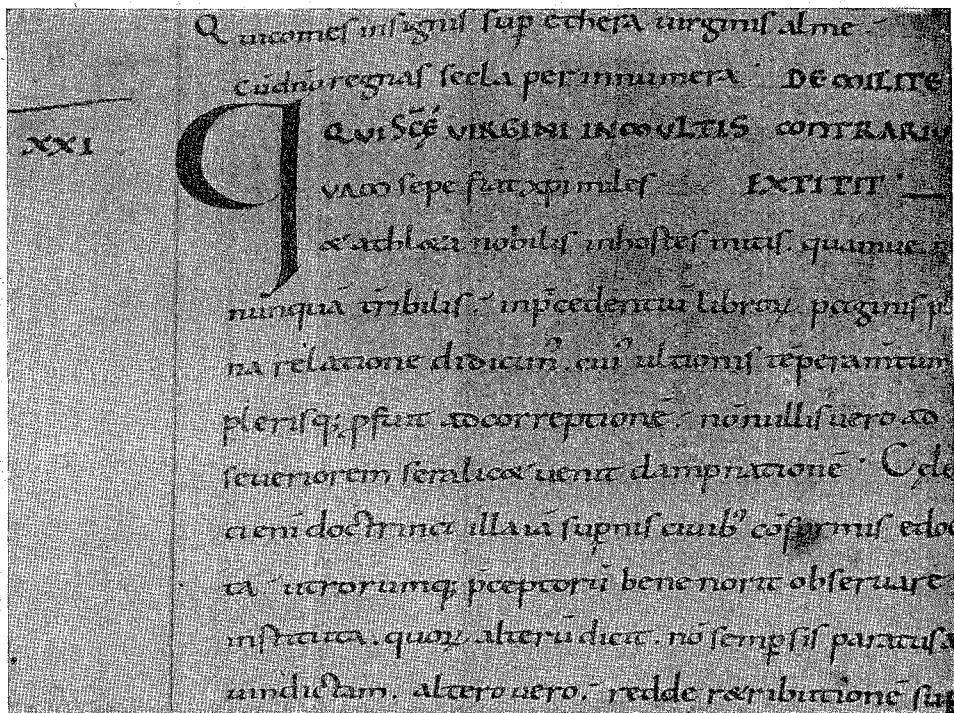 Quicomes insignis sup ethera uirginis alme
cũdño regnas secla per innumera DE MILITE
XXI QUI SC̃Ę VIRGINI INMULTIS CONTRARIU
QVAM sepe fuit xp̃i miles EXTITIT
& athl&a nobilis inhostes mitis. quamue
nũnquã tr̃ibilis. inp̃cedentiũ libroꝝ paginis
na relatione didicim᾽. cui᾽ ultionis tẽperam̃tum
plerisq; ꝓfuit adcorreptionẽ. nõnullis uero ad
seueriorem uenit dampnationẽ. Cęle
ci eni doctrina illa iã sup̃nis ciuib᾽ cõformis edoc
ta utrorumq; p̃ceptorũ bene norit obseruare
instituta. quoꝝ alterũ dicit. nõ semp̲ sis paratus
uindictam. altero uero. redde r&ributionẽ sup̲